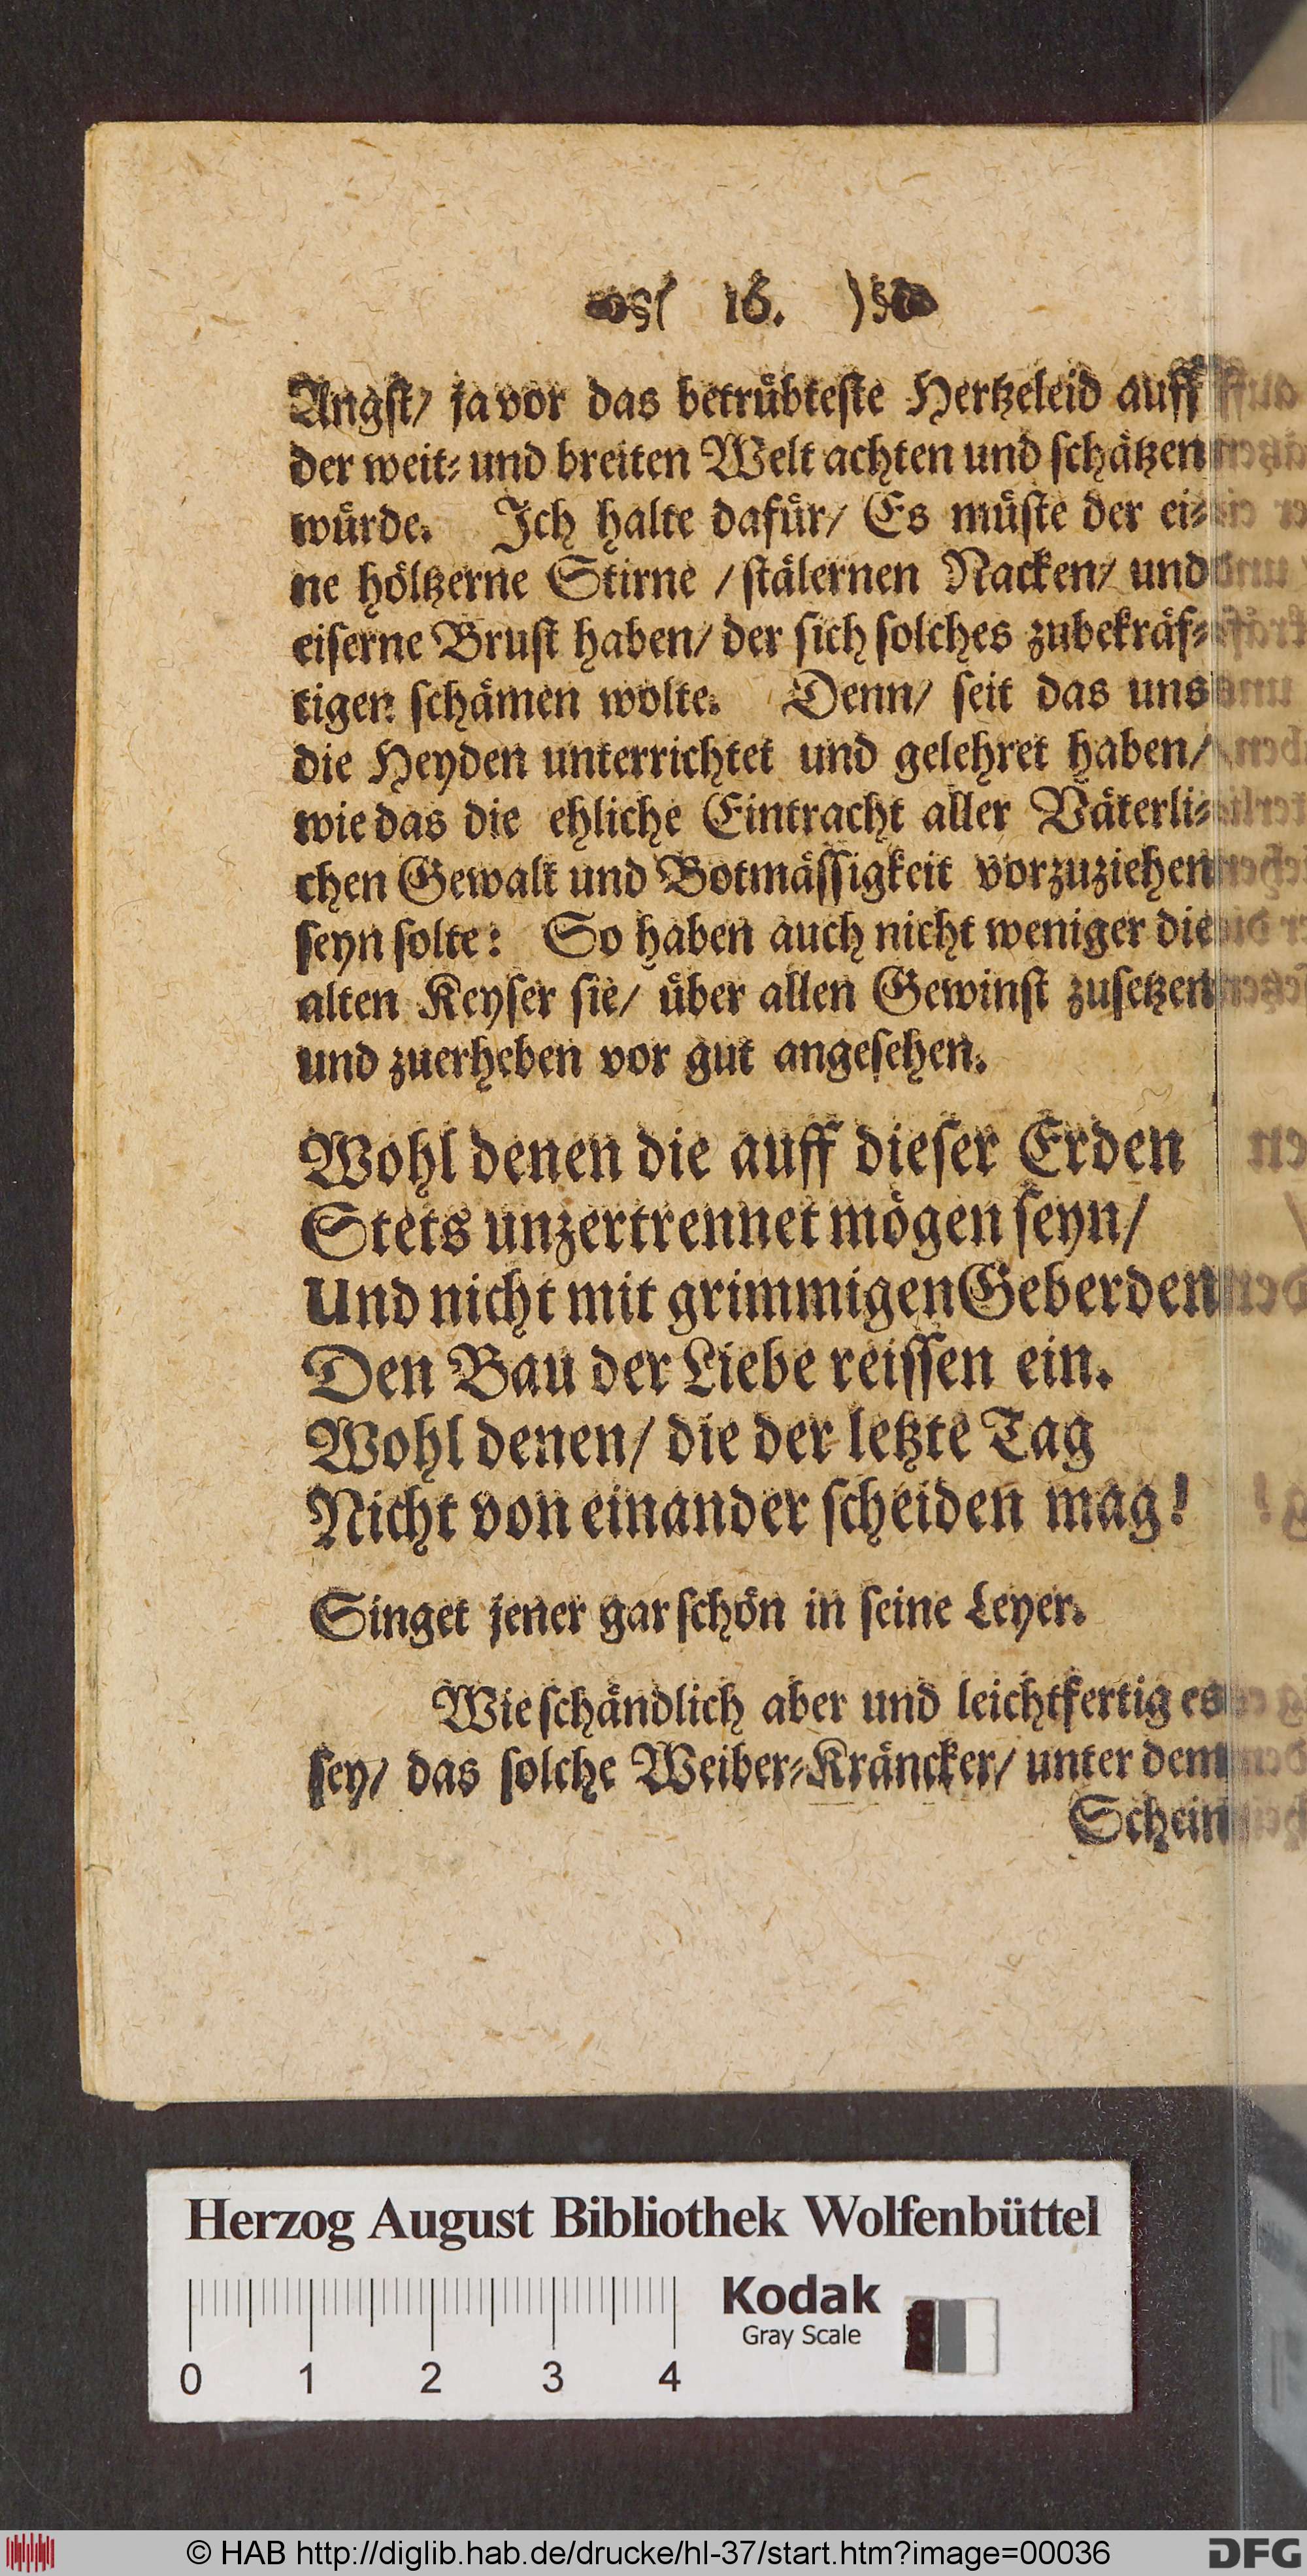 §( 16. )§
Angst/ ja vor das betrübteste Hertzeleid auff
der weit- und breiten Welt achten und schätzen
würde. Ich halte dafür/ Es müste der ei-
ne höltzerne Stirne / stälernen Nacken/ und
eiserne Brust haben/ der sich solches zubekräf-
tigen schämen wolte. Denn/ seit das uns
die Heyden unterrichtet und gelehret haben/
wie das die ehliche Eintracht aller Väterli-
chen Gewalt und Botmässigkeit vorzuziehen
seyn solte: So haben auch nicht weniger die
alten Keyser sie/ über allen Gewinst zusetzen
und zuerheben vor gut angesehen.
Wohl denen die auff dieser Erden
Stets unzertrennet mögen seyn/
Und nicht mit grimmigen Geberden
Den Bau der Liebe reissen ein.
Wohl denen/ die der letzte Tag
Nicht von einander scheiden mag!
Singet jener gar schön in seine Leyer.
Wie schändlich aber und leichtfertig es
sey/ das solche Weiber-Kräncker/ unter dem
Schein
Herzog August Bibliothek Wolfenbüttel
Kodak
Gray Scale
0 1 2 3 4
© HAB http://diglib.hab.de/drucke/hl-37/start.htm?image=00036
DFG